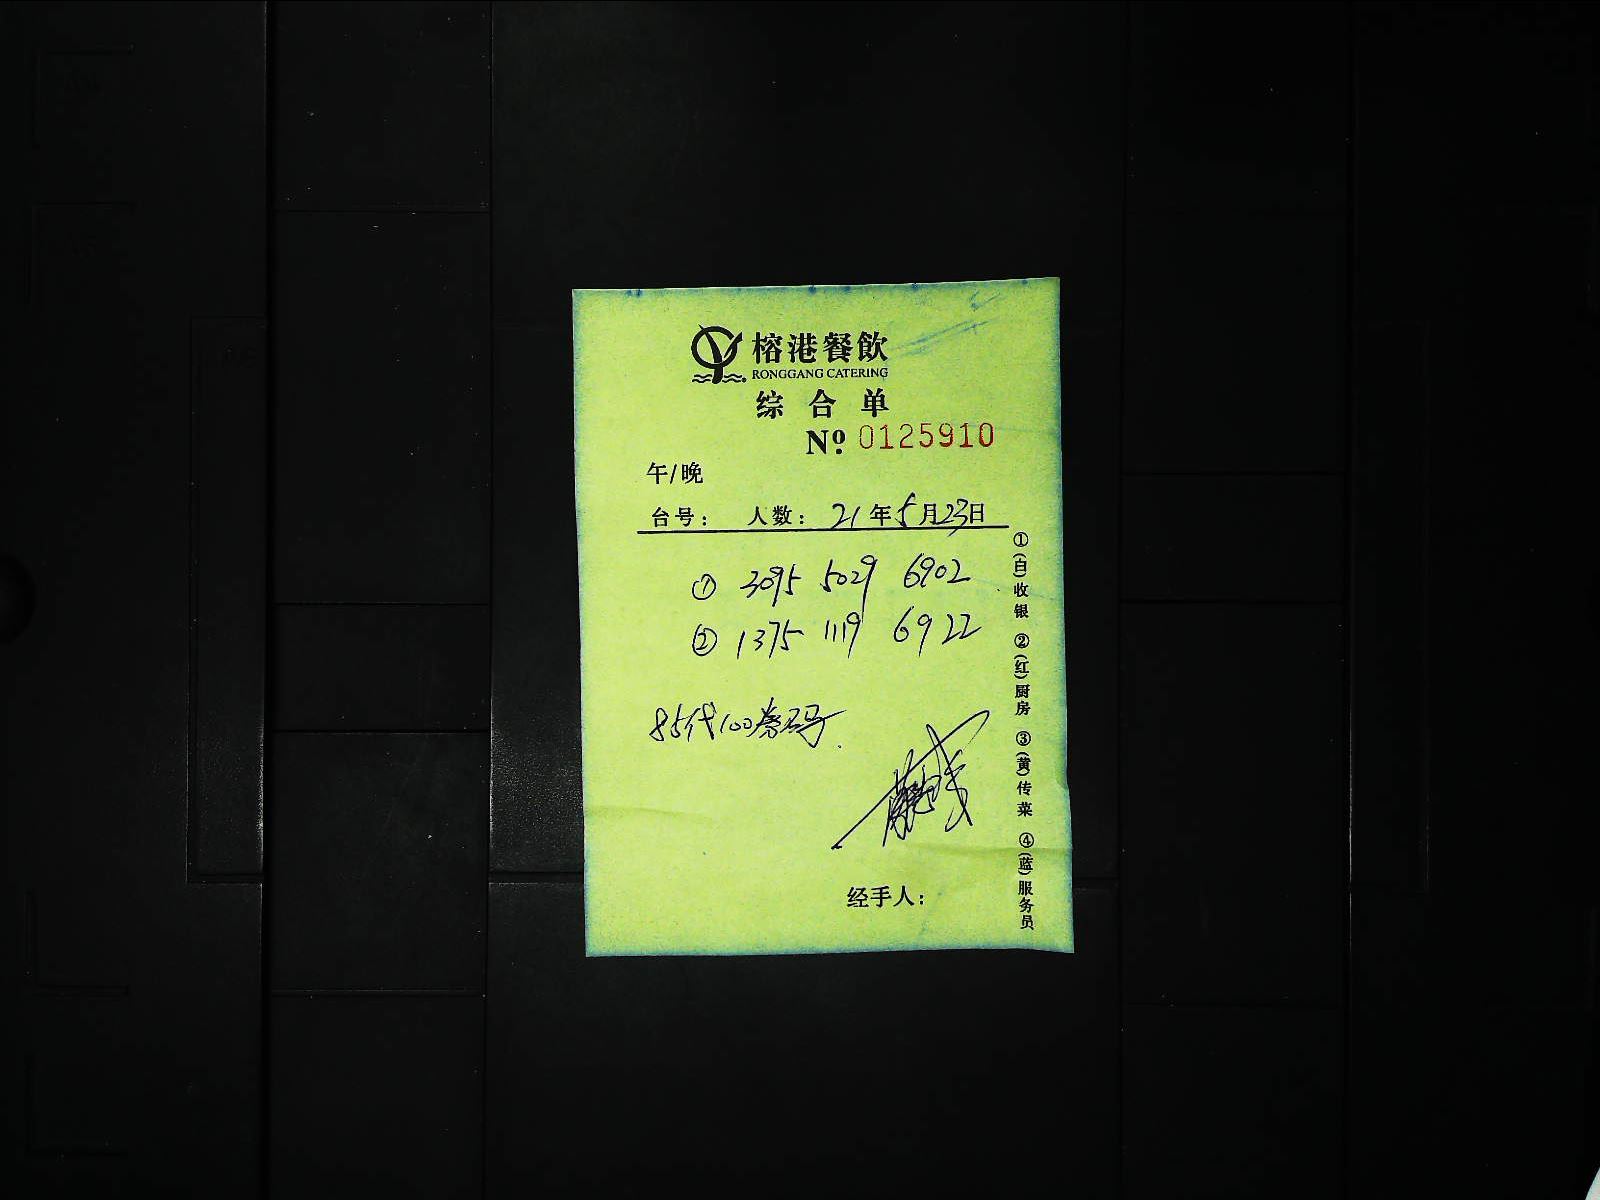 榕港餐飲
RONGGANG CATERING
综合单
Nº 0125910
午/晚
台号: 人数: 21年5月23日
① 3095 5029 6902
② 1375 1119 6922
85代100券码
经手人:
①(白)收银 ②(红)厨房 ③(黄)传菜 ④(蓝)服务员